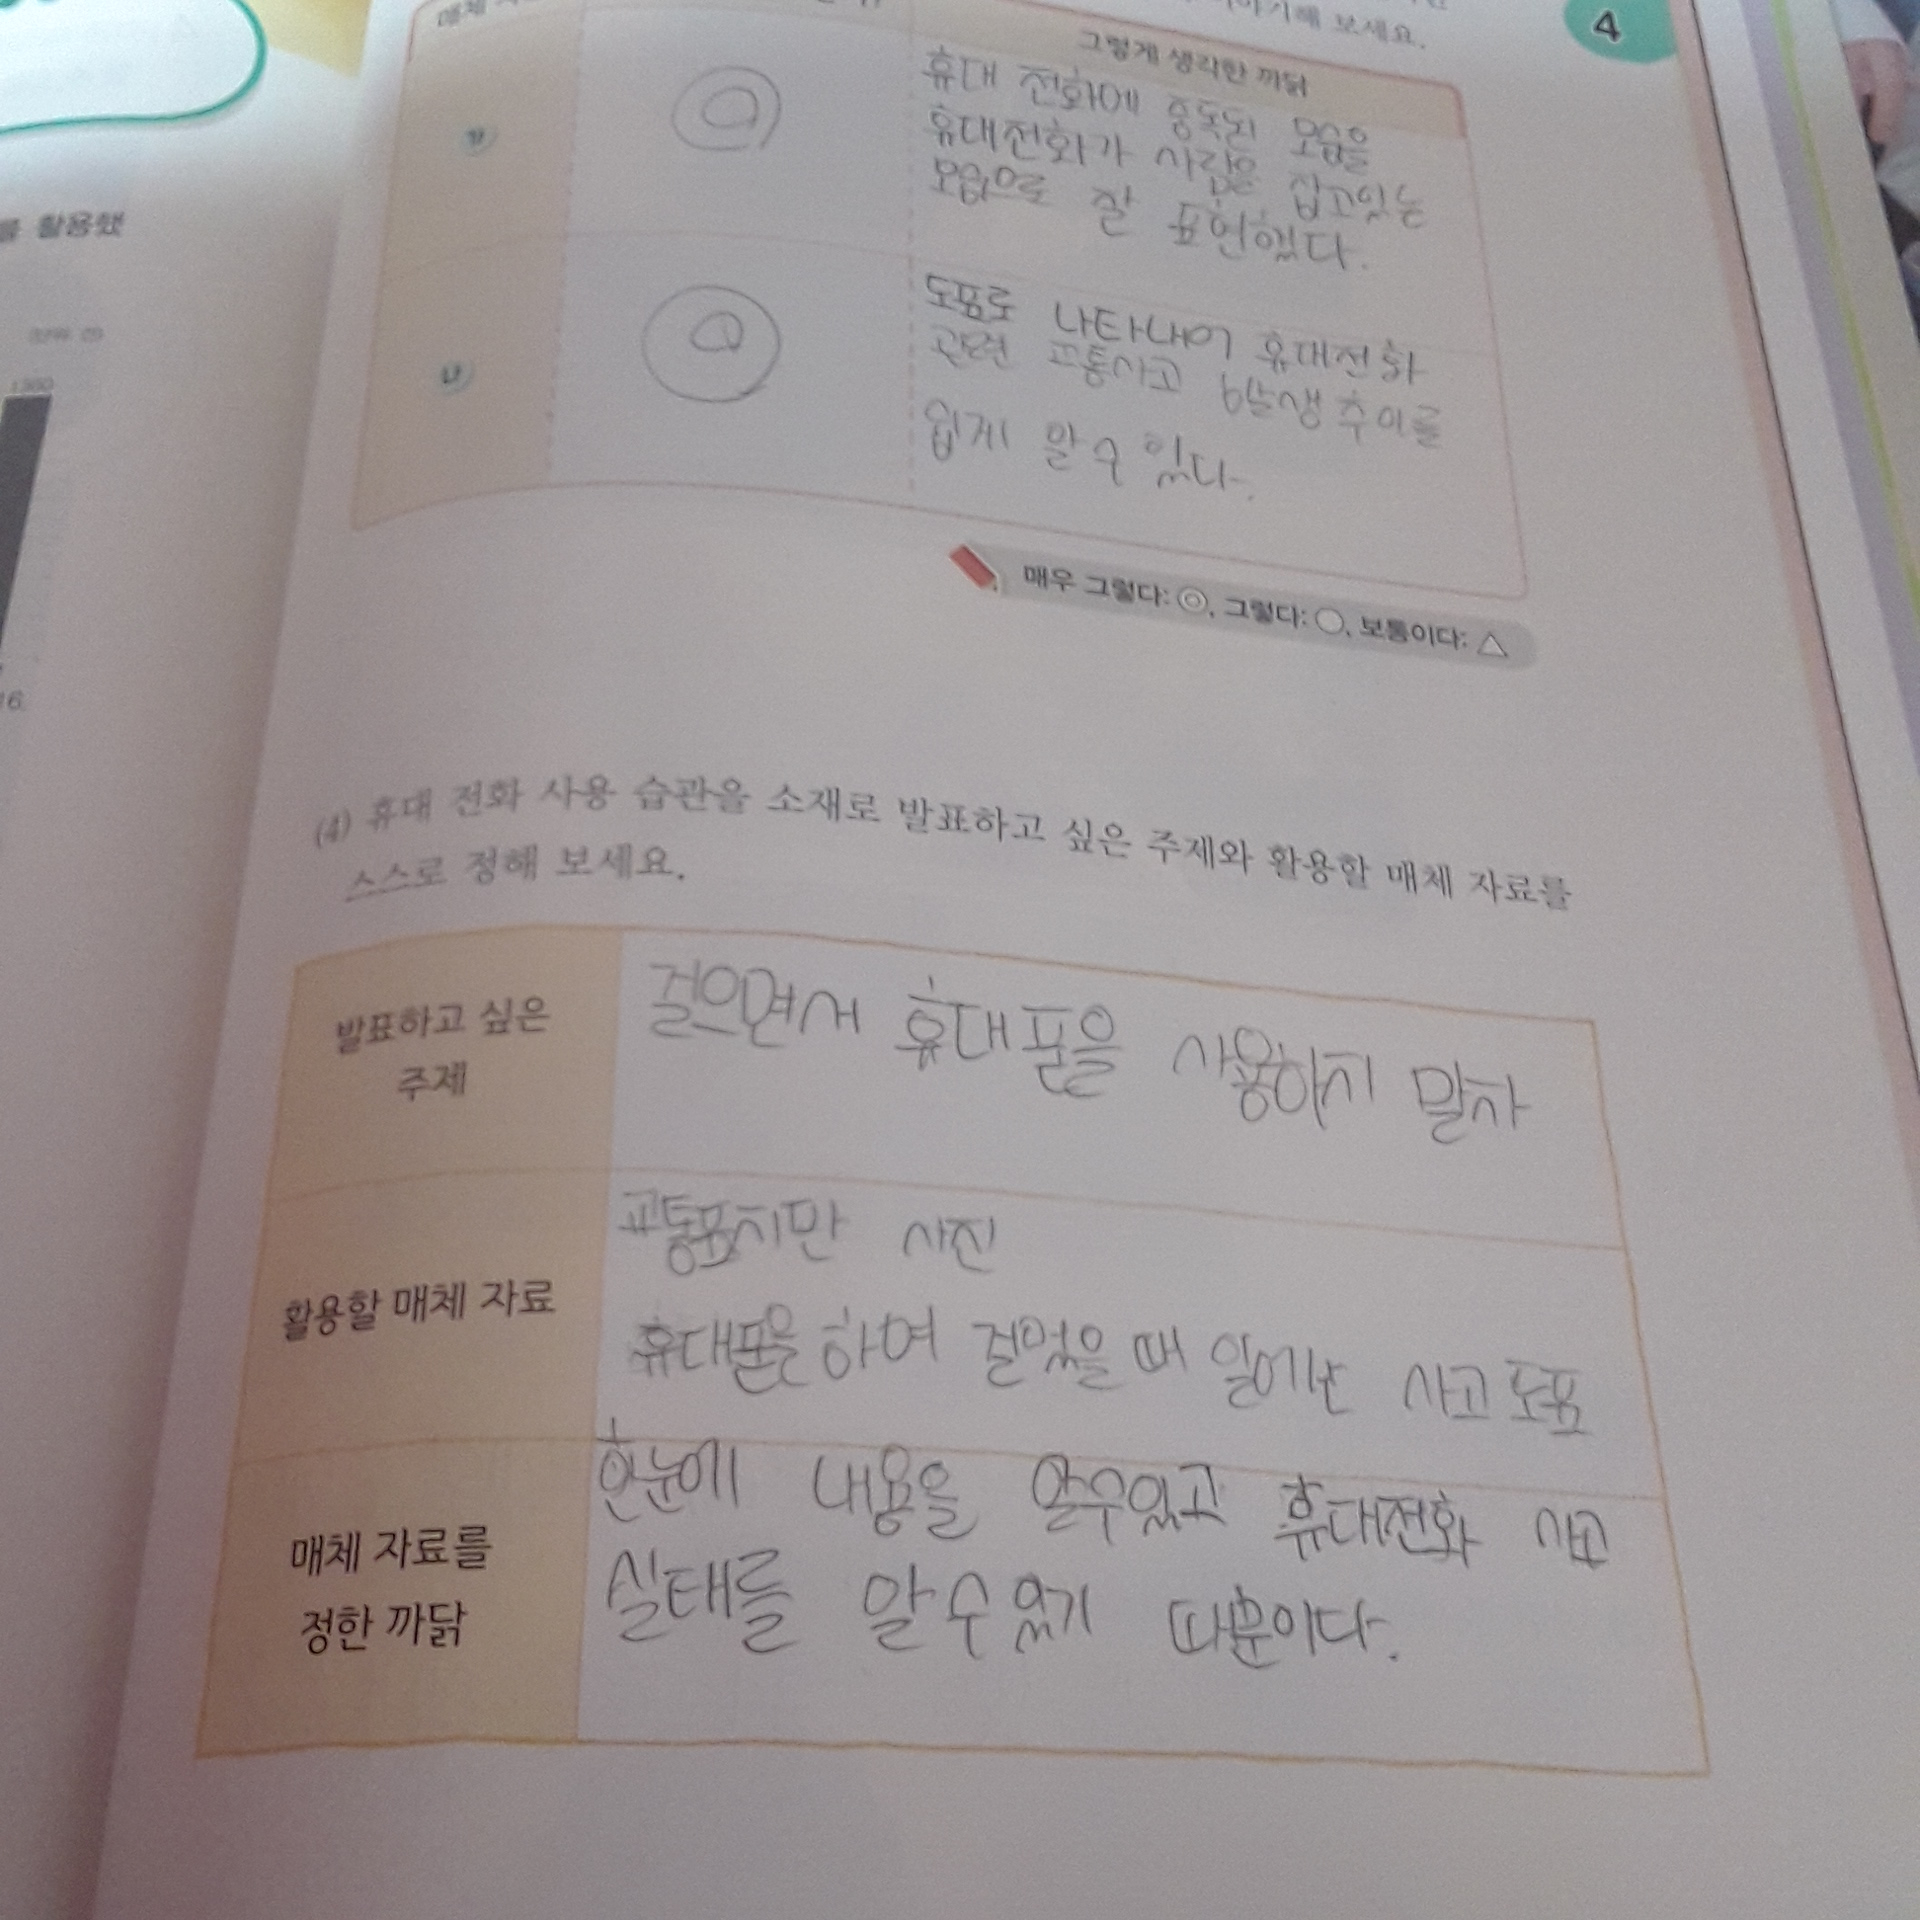 를 활용했
1360
16
매체
해 보세요.
4
그렇게 생각한 까닭
가
휴대 전화에 중독된 모습을
휴대전화가 사람을 잡고있는
모습으로 잘 표현했다.
나
도표로 나타내어 휴대전화
관련 교통사고 발생추이를
쉽게 알 수 있다.
매우 그렇다: ◎, 그렇다: ○, 보통이다: △
(4) 휴대 전화 사용 습관을 소재로 발표하고 싶은 주제와 활용할 매체 자료를
스스로 정해 보세요.
발표하고 싶은
주제
걸으면서 휴대폰을 사용하지 말자
활용할 매체 자료
교통표지만 사진
휴대폰을 하여 걸었을 때 일에난 사고 도표
매체 자료를
정한 까닭
한눈에 내용을 알수있고 휴대전화 사고
실태를 알 수 있기 때문이다.